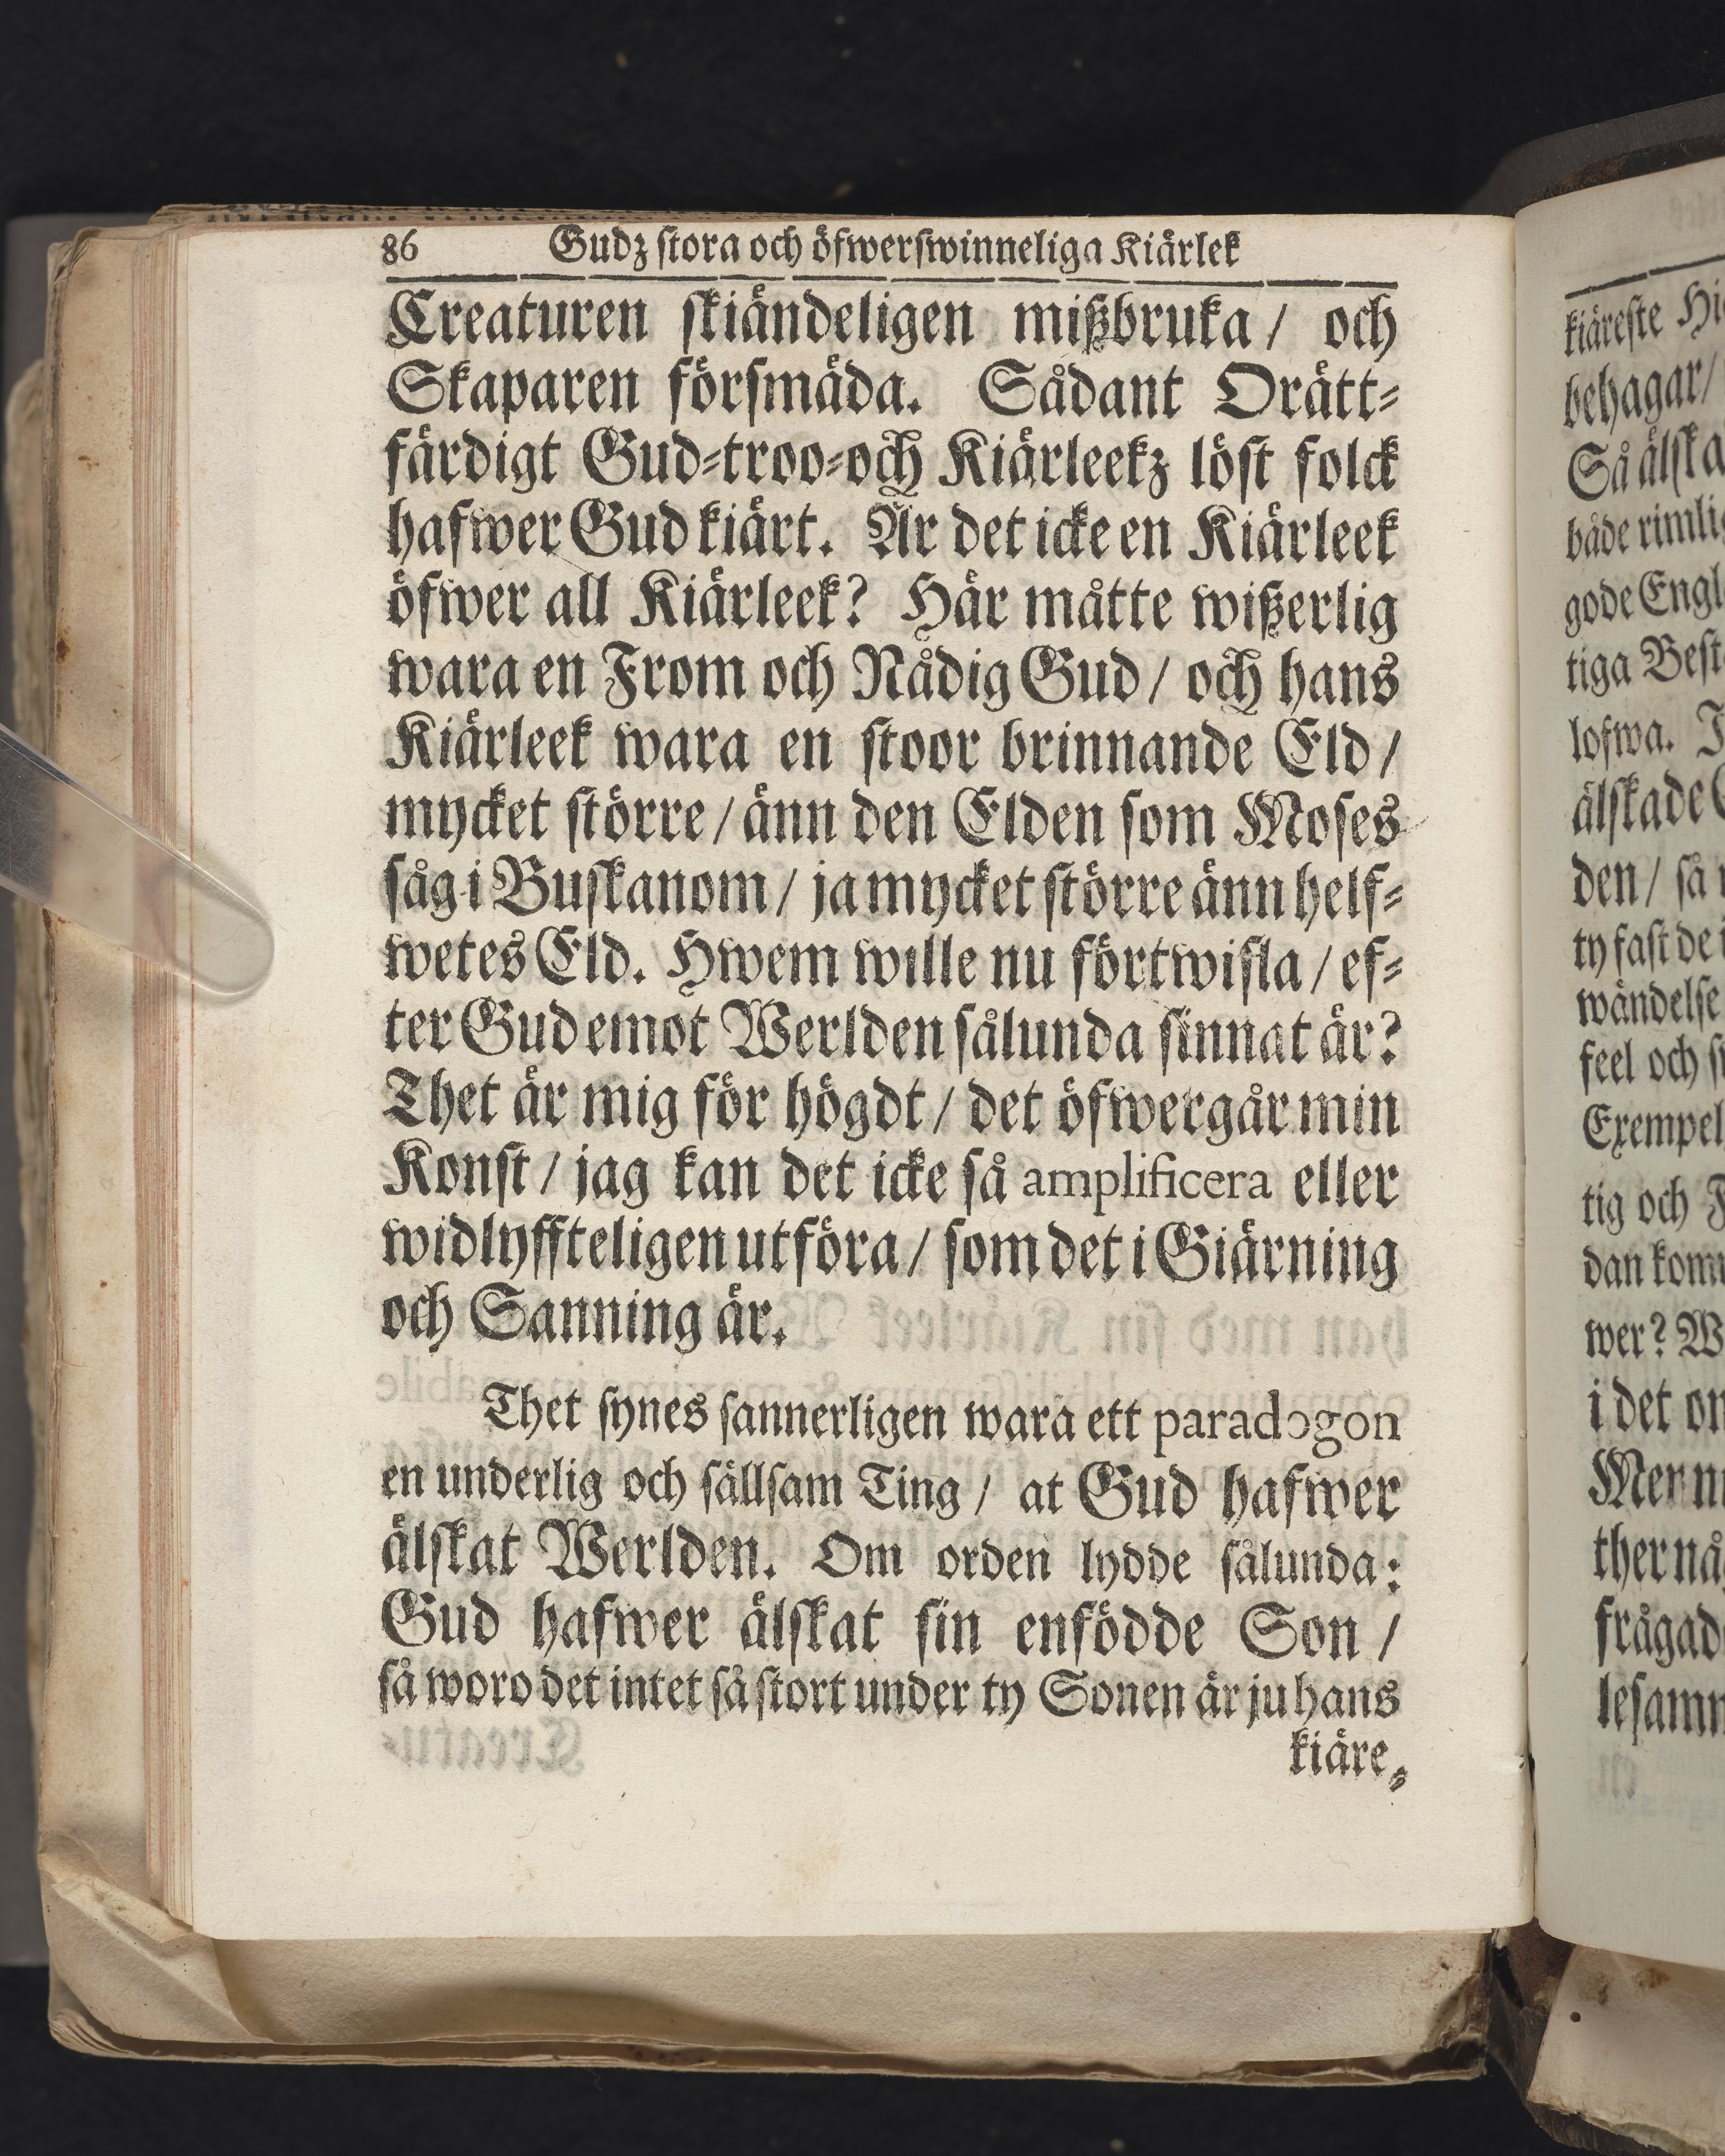 86 Gudz stora och öfwerswinneliga Kiärlek
Creaturen skiändeligen mißbruka / och
Skaparen försmäda. Sådant Orätt-
färdigt Gud-troo-och Kiärleekz löst folck
hafwer Gud kiärt. Är det icke en Kiärleek
öfwer all Kiärleek? Här måtte wißerlig
wara en From och Nådig Gud / och hans
Kiärleek wara en stoor brinnande Eld /
mycket större / änn den Elden som Moses
såg i Buskanom / ja mycket större änn helf-
wetes Eld. Hwem wille nu förtwifla / ef-
ter Gud emot Werlden sålunda sinnat är?
Thet är mig för högdt / det öfwergår min
Konst / jag kan det icke så amplificera eller
widlyffteligen utföra / som det i Giärning
och Sanning är.
Thet synes sannerligen wara ett paradogon
en underlig och sällsam Ting / at Gud hafwer
älskat Werlden. Om orden lydde sålunda:
Gud hafwer älskat sin enfödde Son /
så woro det intet så stort under ty Sonen är ju hans
kiäre-
kiäreste
behagar/
Så älska
både
gode
tiga
lofwa.
älskade
den / så
ty fast de
wändelse
feel och
Exempel
tig och
dan
wer? W
i det
ther